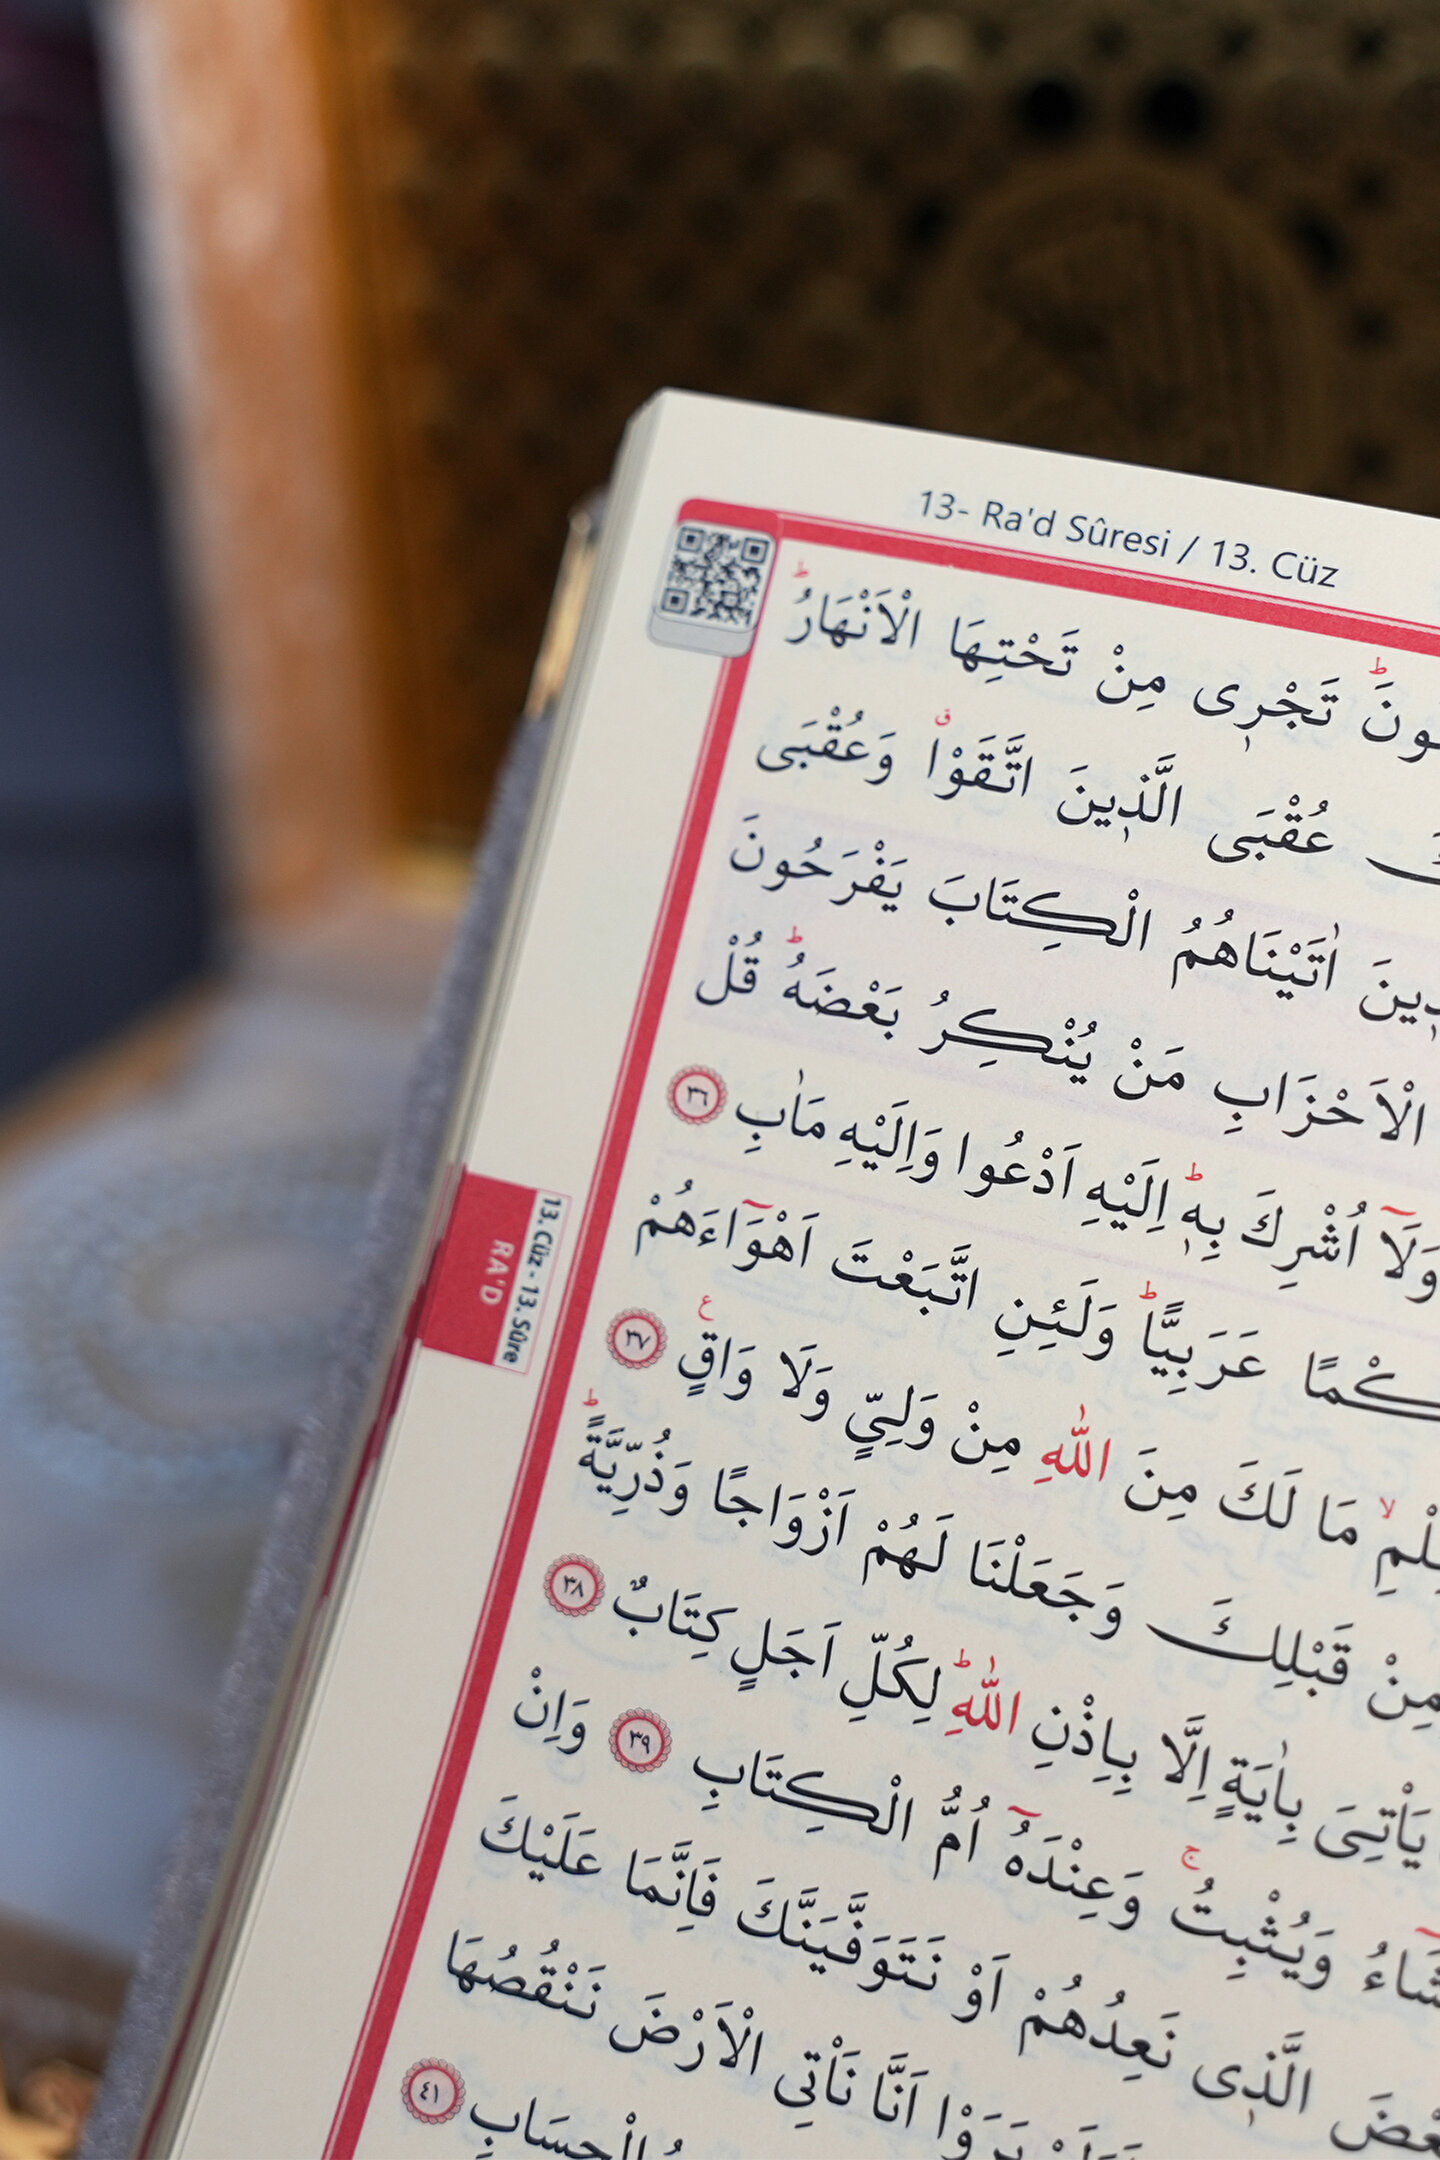 13- Ra'd Sûresi / 13. Cüz
تَجْرٖى مِنْ تَحْتِهَا الْاَنْهَارُؕ
عُقْبَى الَّذٖينَ اتَّقَوْاۗ وَعُقْبَى
اٰتَيْنَاهُمُ الْكِتَابَ يَفْرَحُونَ
الْاَحْزَابِ مَنْ يُنْكِرُ بَعْضَهُؕ قُلْ
وَلَٓا اُشْرِكَ بِهٖؕ اِلَيْهِ اَدْعُوا وَاِلَيْهِ مَاٰبِ ٣٦
عَرَبِيًّاؕ وَلَئِنِ اتَّبَعْتَ اَهْوَٓاءَهُمْ
مَا لَكَ مِنَ اللّٰهِ مِنْ وَلِيٍّ وَلَا وَاقٍ ع ٣٧
مِنْ قَبْلِكَ وَجَعَلْنَا لَهُمْ اَزْوَاجًا وَذُرِّيَّةًؕ
يَأْتِىَ بِاٰيَةٍ اِلَّا بِاِذْنِ اللّٰهِؕ لِكُلِّ اَجَلٍ كِتَابٌ ٣٨
وَيُثْبِتُۚ وَعِنْدَهُٓ اُمُّ الْكِتَابِ ٣٩ وَاِنْ
الَّذٖى نَعِدُهُمْ اَوْ نَتَوَفَّيَنَّكَ فَاِنَّمَا عَلَيْكَ
يَرَوْا اَنَّا نَأْتِي الْاَرْضَ نَنْقُصُهَا
الْحِسَابِ ٤١
13. Cüz - 13. Sûre
RA'D